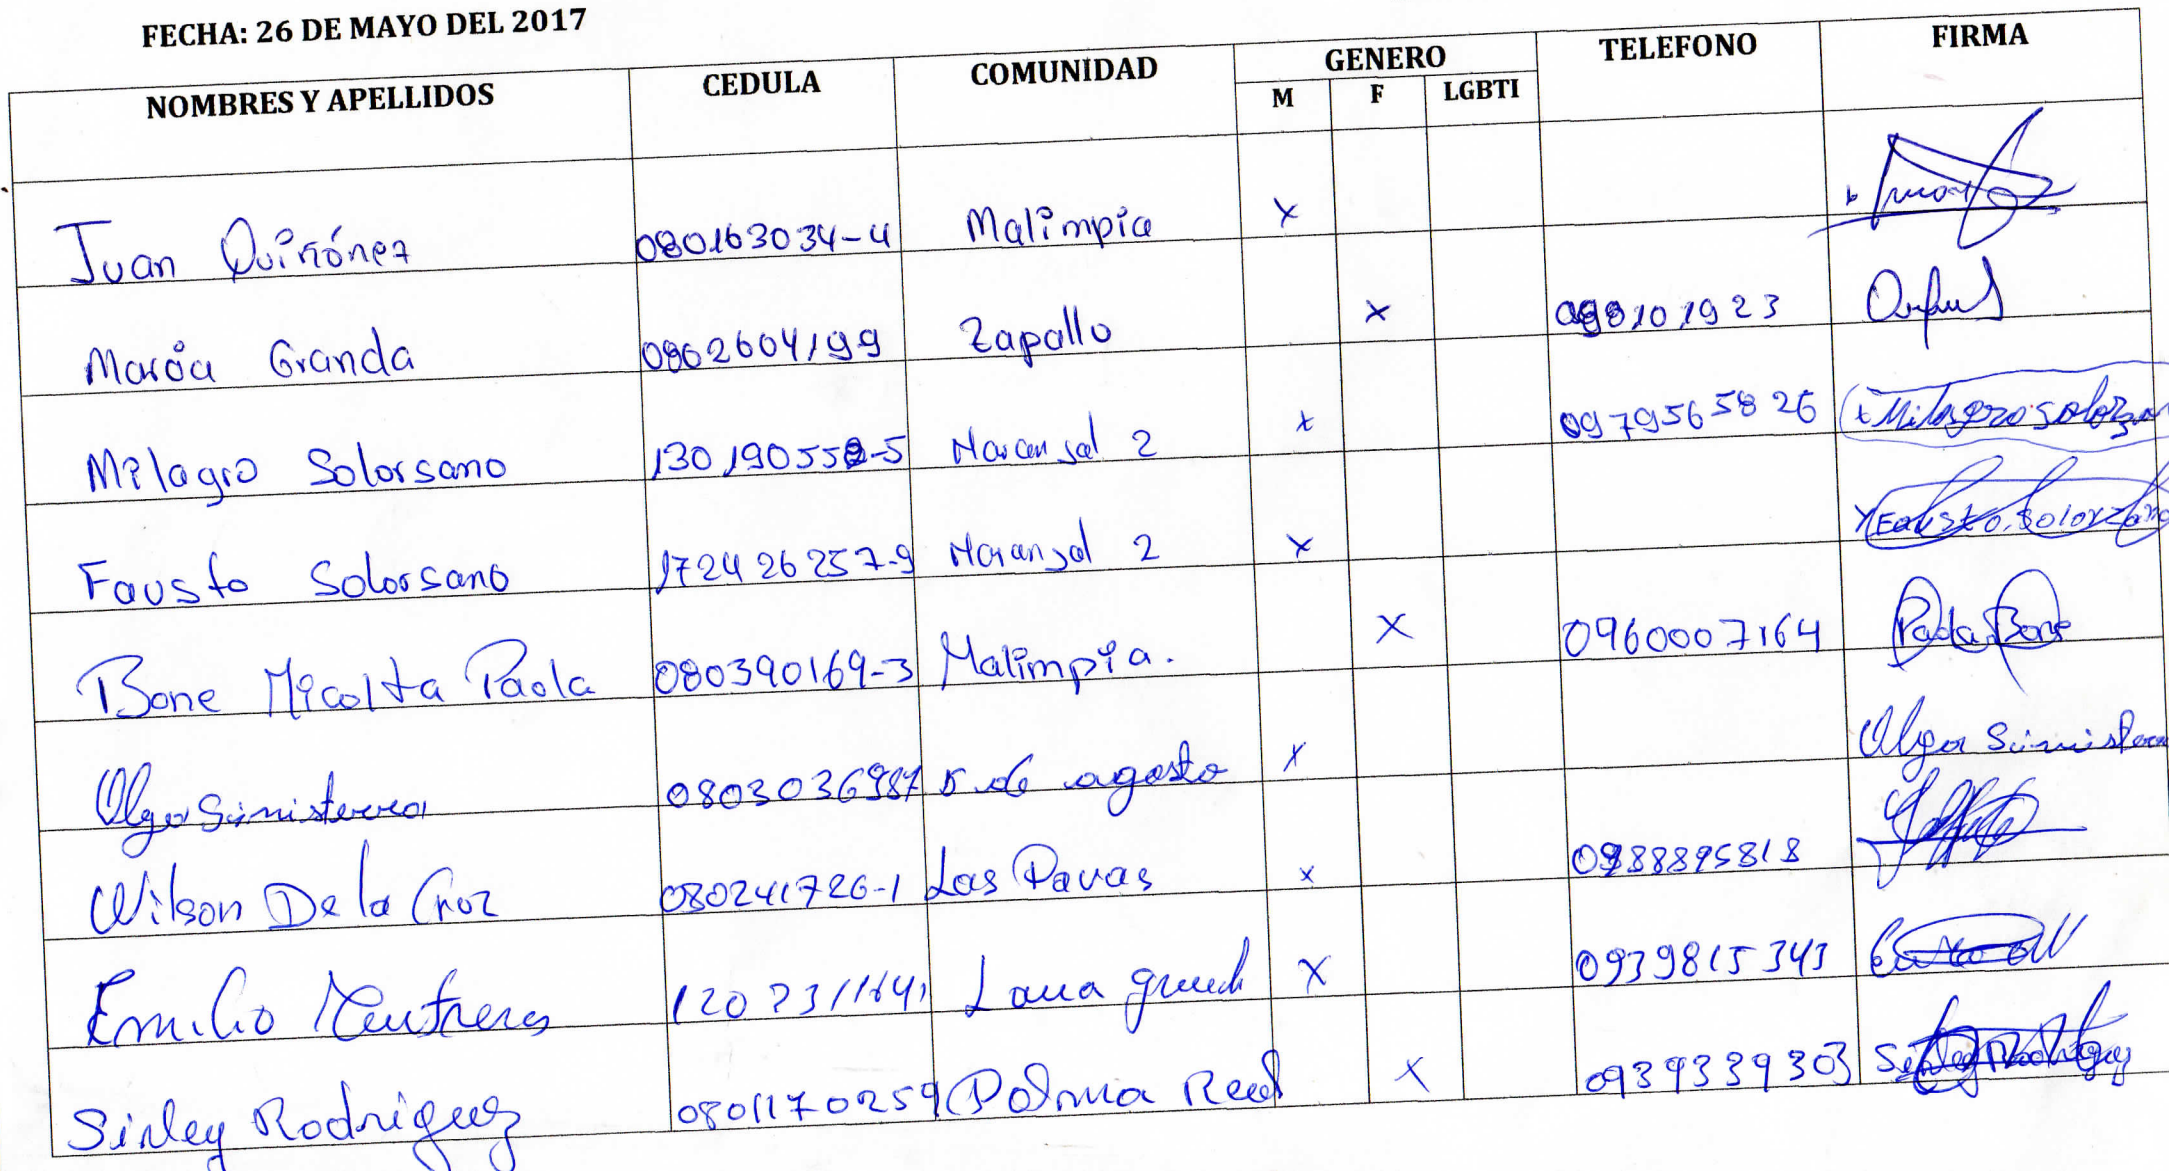 FECHA: 26 DE MAYO DEL 2017
NOMBRES Y APELLIDOS CEDULA COMUNIDAD GENERO TELEFONO FIRMA
M F LGBTI
Juan Quiñónez 080163034-4 Malimpia X
María Granda 0802604199 Zapallo X 098101923
Milagro Solorsano 130190558-5 Naranjal 2 x 0979565826 Milagro Solorzan
Fausto Solorsano 172426257-9 Naranjal 2 X Fausto Solorzano
Bone Micolta Paola 080390169-3 Malimpia. X 0960007164 Paola Bone
Olga Simisterra 0803036987 5 de agosto X Olga Simisterra
Wilson De la Croz 080241726-1 Las Pavas x 0988895818
Emilio X 0939815343
Sirley Rodriguez 0801170259 Palma Real X 0939339303 Sirley Rodriguez